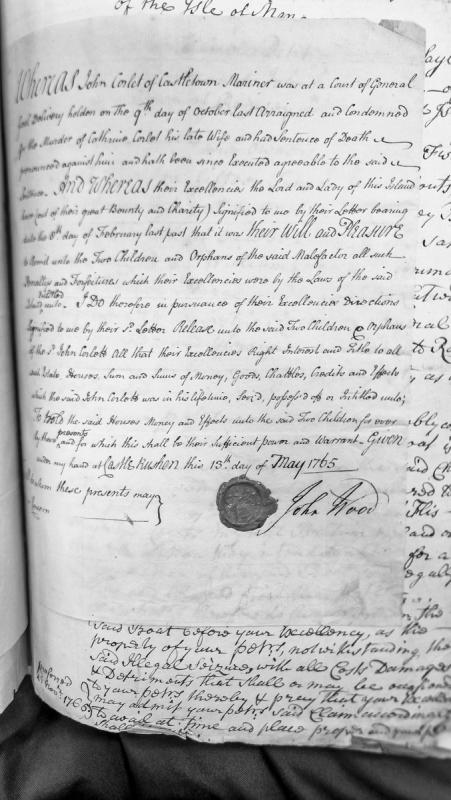 of the Isle of Man
Whereas John Corlet of Castletown Mariner was at a Court of General
Goal Delivery holden on the 9th day of October last Arraigned and Condemned
for the Murder of Cathrine Corlet his late Wife and had Sentence of Death
pronounced against him and hath been since Executed agreeable to the said
Sentence. And Whereas their Excellencies the Lord and Lady of this Island
have (out of their great Bounty and Charity) Signified to me by their Letter bearing
date the day of February last past that it was their Will and Pleasure
to Remit unto the Two Children and Orphans of the said Malefactor all such
Penalties and Forfeitures which their Excellencies were by the Laws of the said
Island Intitled unto. I Do therefore in pursuance of their Excellencies Directions
Signified to me by their Sd. Letter Release unto the said Two Children & Orphans
of the Sd. John Corlett All that their Excellencies Right Interest and Title to all
such Estate Houses, Sum and Sums of Money, Goods, Chattles, Credits and Effects
which the said John Corlett was in his lifetime, Seiz'd, possess'd of or Intitled unto;
To Hold the said Houses Money and Effects unto the said Two Children for ever
by these presents and for which this Shall be their Sufficient power and Warrant. Given
under my hand at Castle Rushen this 13th. day of May 1765
To whom these presents may
Concern
John Wood
said Boat before your Excellency, as the
property of your petrs. notwithstanding the
said Illegal Seizure with all Costs Damages
& Detriments that shall or may be
to your petrs. thereby & pray that your
may admit your petrs. said Claim
to at time and place proper and
shall
1765